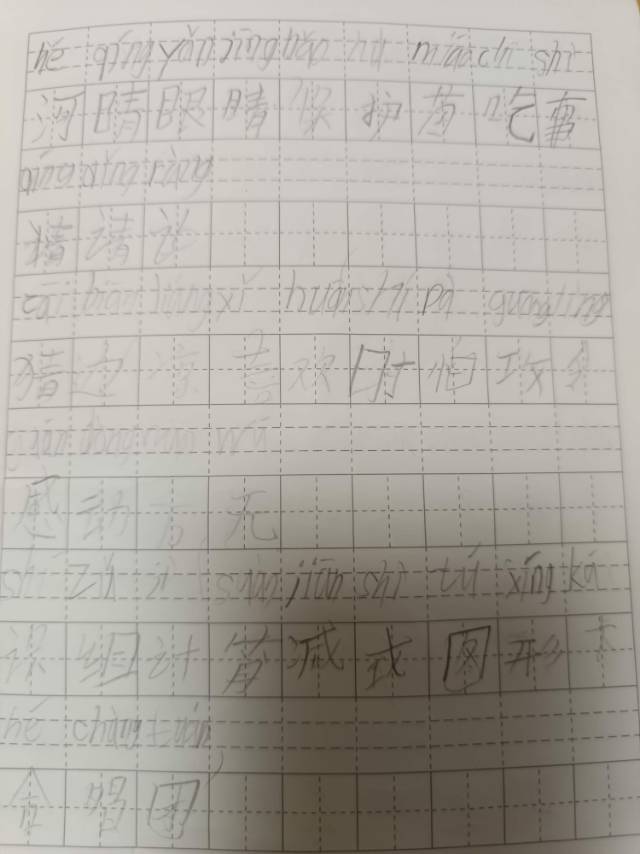 hé qíng yǎn jīng bǎo hù miáo chī shì
河 晴 眼 睛 保 护 苗 吃 事
qíng qǐng ràng
情 请 让
cāi liáng xǐ huān shí pà gōng
猜 凉 喜 欢 时 怕 攻
gǎn dòng wàn wú
感 动 万 无
kè zǔ jì suàn jiǎn shì tú xíng kǎ
课 组 计 算 减 式 图 形 卡
hé chàng tuán
合 唱 团